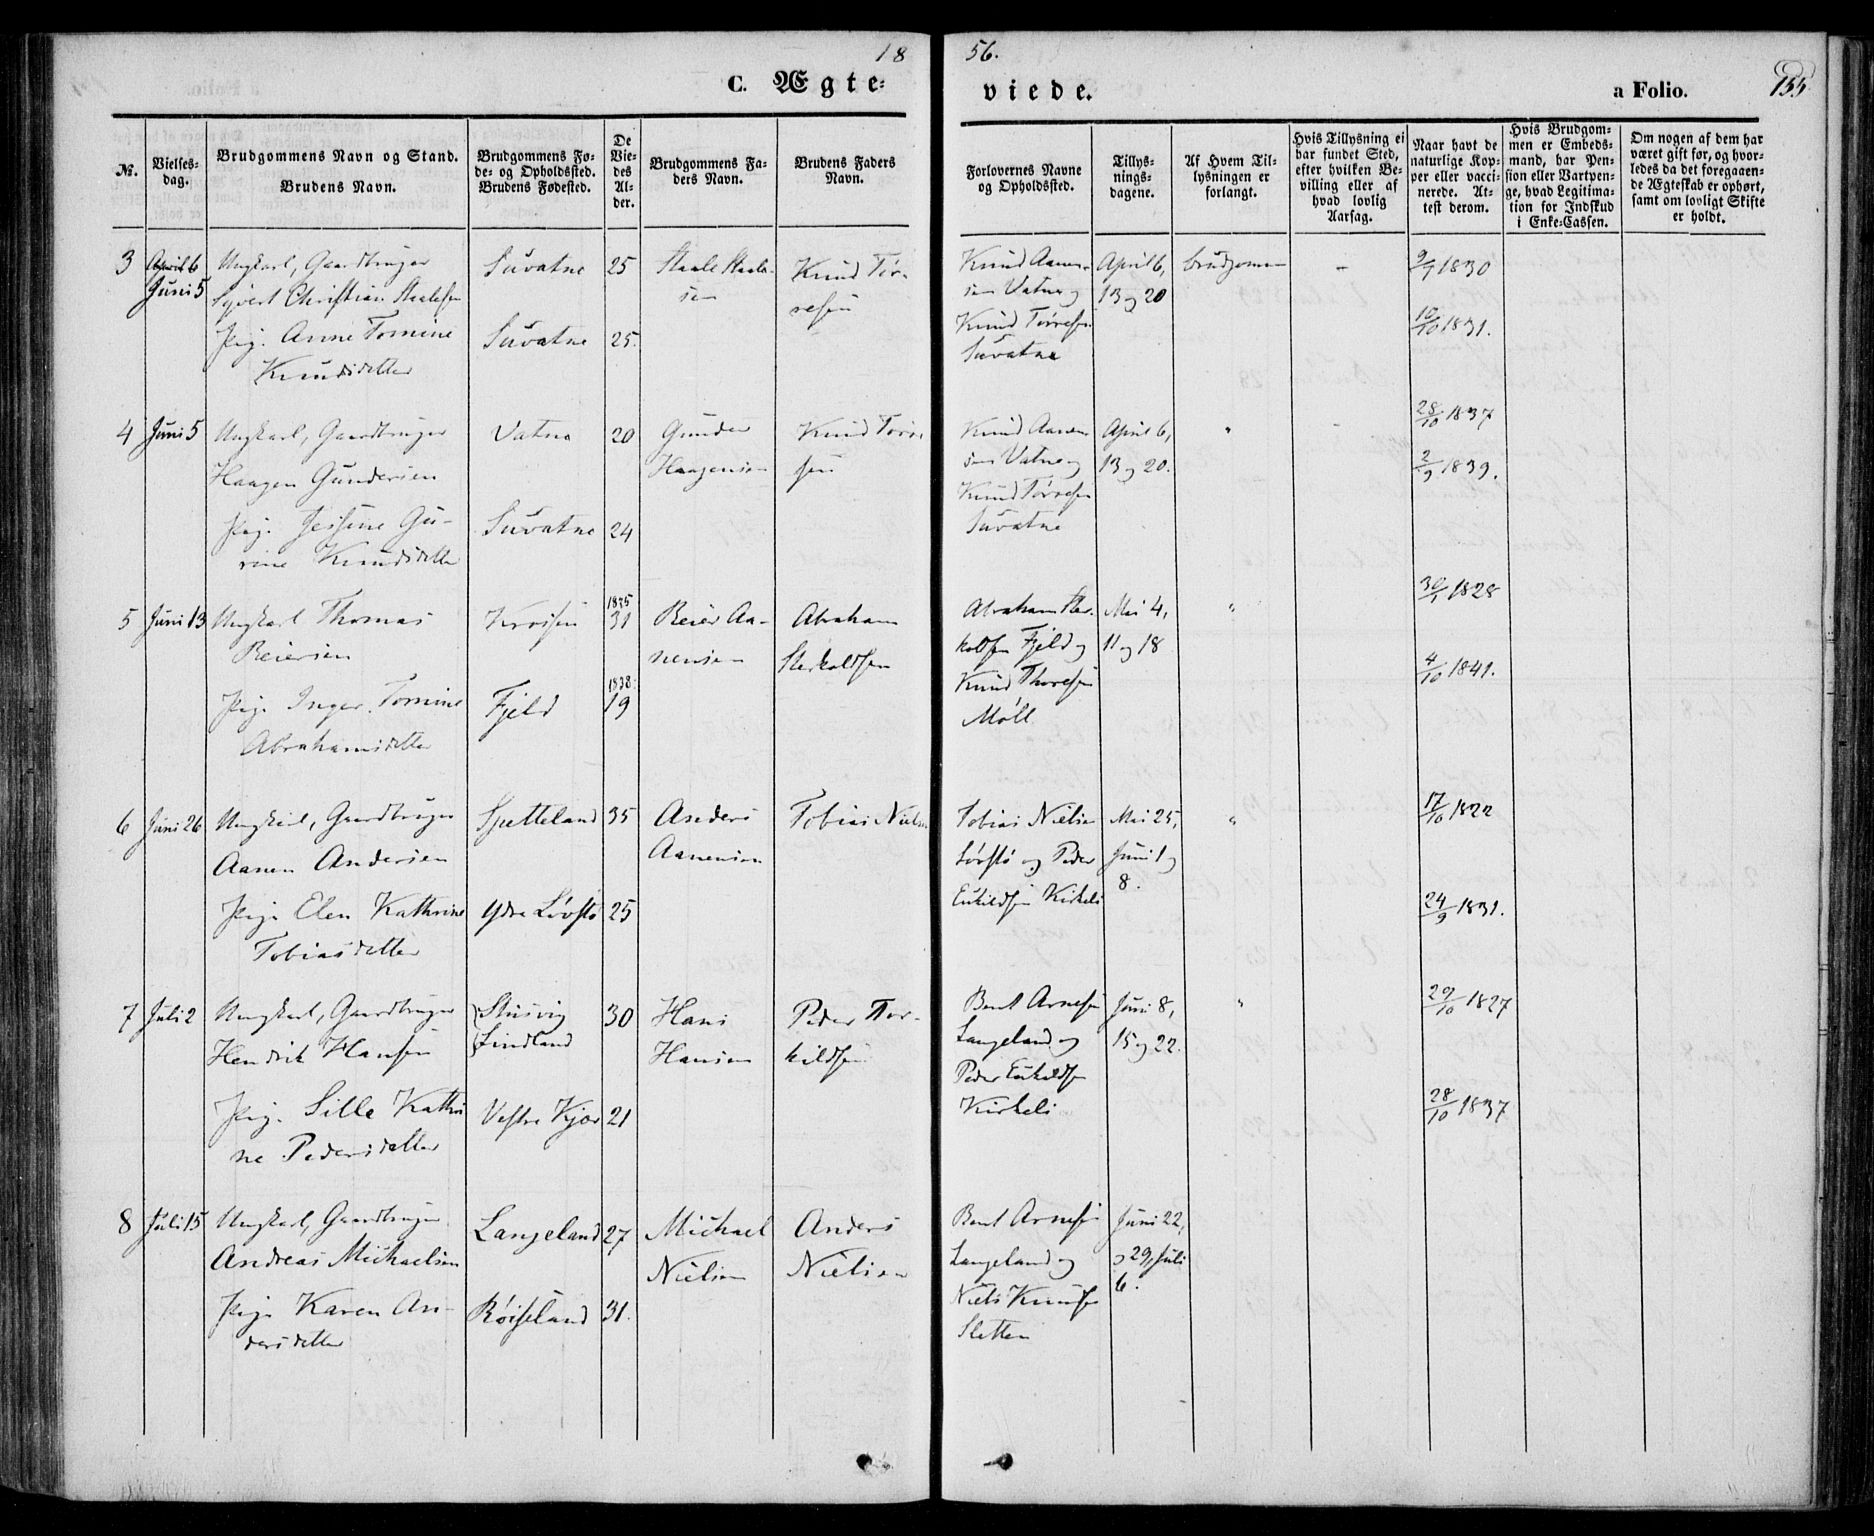 18 56.
C. Ægte-
viede.
a Folio.
155
No.
Vielses-
dag.
Brudgommens Navn og Stand.
Brudens Navn.
Brudgommens Fø-
de- og Opholdssted.
Brudens Fødested.
De
Vie-
des
Al-
der.
Brudgommens Fa-
ders Navn.
Brudens Faders
Navn.
Forlovernes Navne
og Opholdssted.
Tillys-
nings-
dagene.
Af Hvem Til-
lysningen er
forlangt.
Hvis Tillysning ei
har fundet Sted,
efter hvilken Be-
villing eller af
hvad lovlig
Aarsag.
Naar havt de
naturlige Kop-
per eller vacci-
nerede. At-
test derom.
Hvis Brudgom-
men er Embeds-
mand, har Pen-
sion eller Vartpen-
ge, hvad Legitima-
tion for Indskud
i Enke-Cassen.
Om nogen af dem har
været gift før, og hvor-
ledes da det foregaaen-
de Ægteskab er ophørt,
samt om lovligt Skifte
er holdt.
3
April 6
Juni 5
Ungkarl, Gaardbruger
Syvert Christian Staalesen
Pig. Anne Tomine
Knudsdatter
Suvatne
Suvatne
25
25.
Staale Staale-
sen
Knud Tør-
resen
Knud Aanen-
sen Vatne og
Knud Tørresen
Suvatne
April 6,
13 og 20
brudgomen
-
9/1 1830
10/10 1831.
4
Juni 5
Ungkarl, Gaardbruger
Haagen Gundersen
Pig. Jessine Gu-
rine Knudsdatter
Vatne
Suvatne
20
24
Gunder
Haagensen
Knud Tørre-
sen
Knud Aanen-
sen Vatne og
Knud Tørresen
Suvatne
April 6,
13 og 20.
"
-
28/10 1837
2/9 1839.
5
Juni 13
Ungkarl Thomas
Reiersen
Pig. Inger Tomine
Abrahamsdatter
Fjeld
1825
31
1838:
19
Reier Aa-
nensen
Abraham
Sterkoldsen
Abraham Ster-
koldsen Fjeld og
Knud Thoresen
Møll
Mai 4,
11 og 18
"
30/1 1828
4/10 1841.
6
Juni 26
Ungkarl, Gaardbruger
Aanen Andersen
Pig. Elen Kathrine
Tobiasdatter
Spetteland
Ydre Løvstø
35
25
Anders
Aanensen
Tobias Nielsen
Tobias Nielsen
Løvstø og Peder
Eskildsen Kirkeli
Mai 25,
Juni 1 og
8.
"
17/10 1822
24/9 1831.
7
Juli 2
Ungkarl, Gaardbruger
Hendrik Hansen
Pig. Sille Kathri
ne Pedersdatter
Stusvig
Lindland
Vestre Kjær
30
21
Hans
Hansen
Peder Tor-
kildsen
Bent Arnesen
Langeland og
Peder Eskildsen
Kirkeli
Juni 8,
15 og 22.
"
29/10 1827
28/10 1837
8
Juli 15
Ungkarl, Gaardbruger
Andreas Michaelsen
Pig. Karen An-
dersdatter
Langeland
Røiseland
27
31.
Michael
Nielsen
Anders
Nielsen
Bent Arnesen
Langeland og
Niels Knudsen
Sletten
Juni 22,
29, Juli
6.